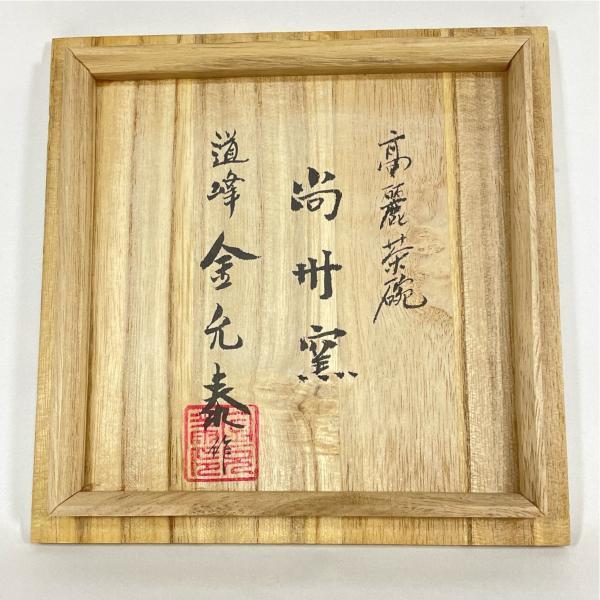 高麗茶碗
尚州窯
道峰 金允泰 作